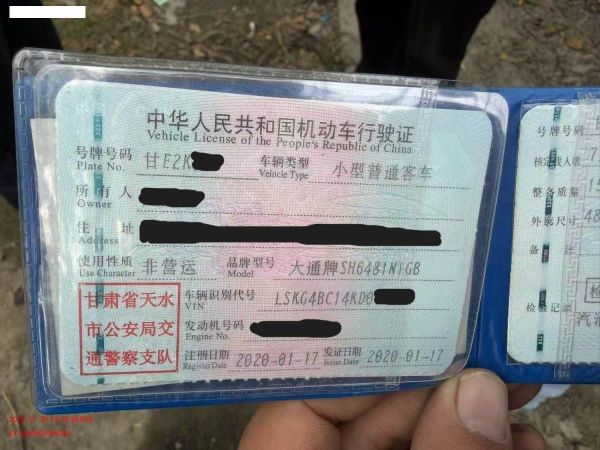 中华人民共和国机动车行驶证
Vehicle License of the People's Republic of China
号牌号码 甘E2K 车辆类型 小型普通客车
Plate No. Vehicle Type
所有人
Owner
住址
Address
使用性质 非营运 品牌型号 大通牌SH6481N1GB
Use Character Model
甘肃省天水
市公安局交
通警察支队
车辆识别代号 LSKG4BC14KD0
VIN
发动机号码
Engine No.
注册日期 2020-01-17 发证日期 2020-01-17
Register Date Issue Date
号牌号码
核定载人数
整备质量
外廓尺寸
备
检验记录